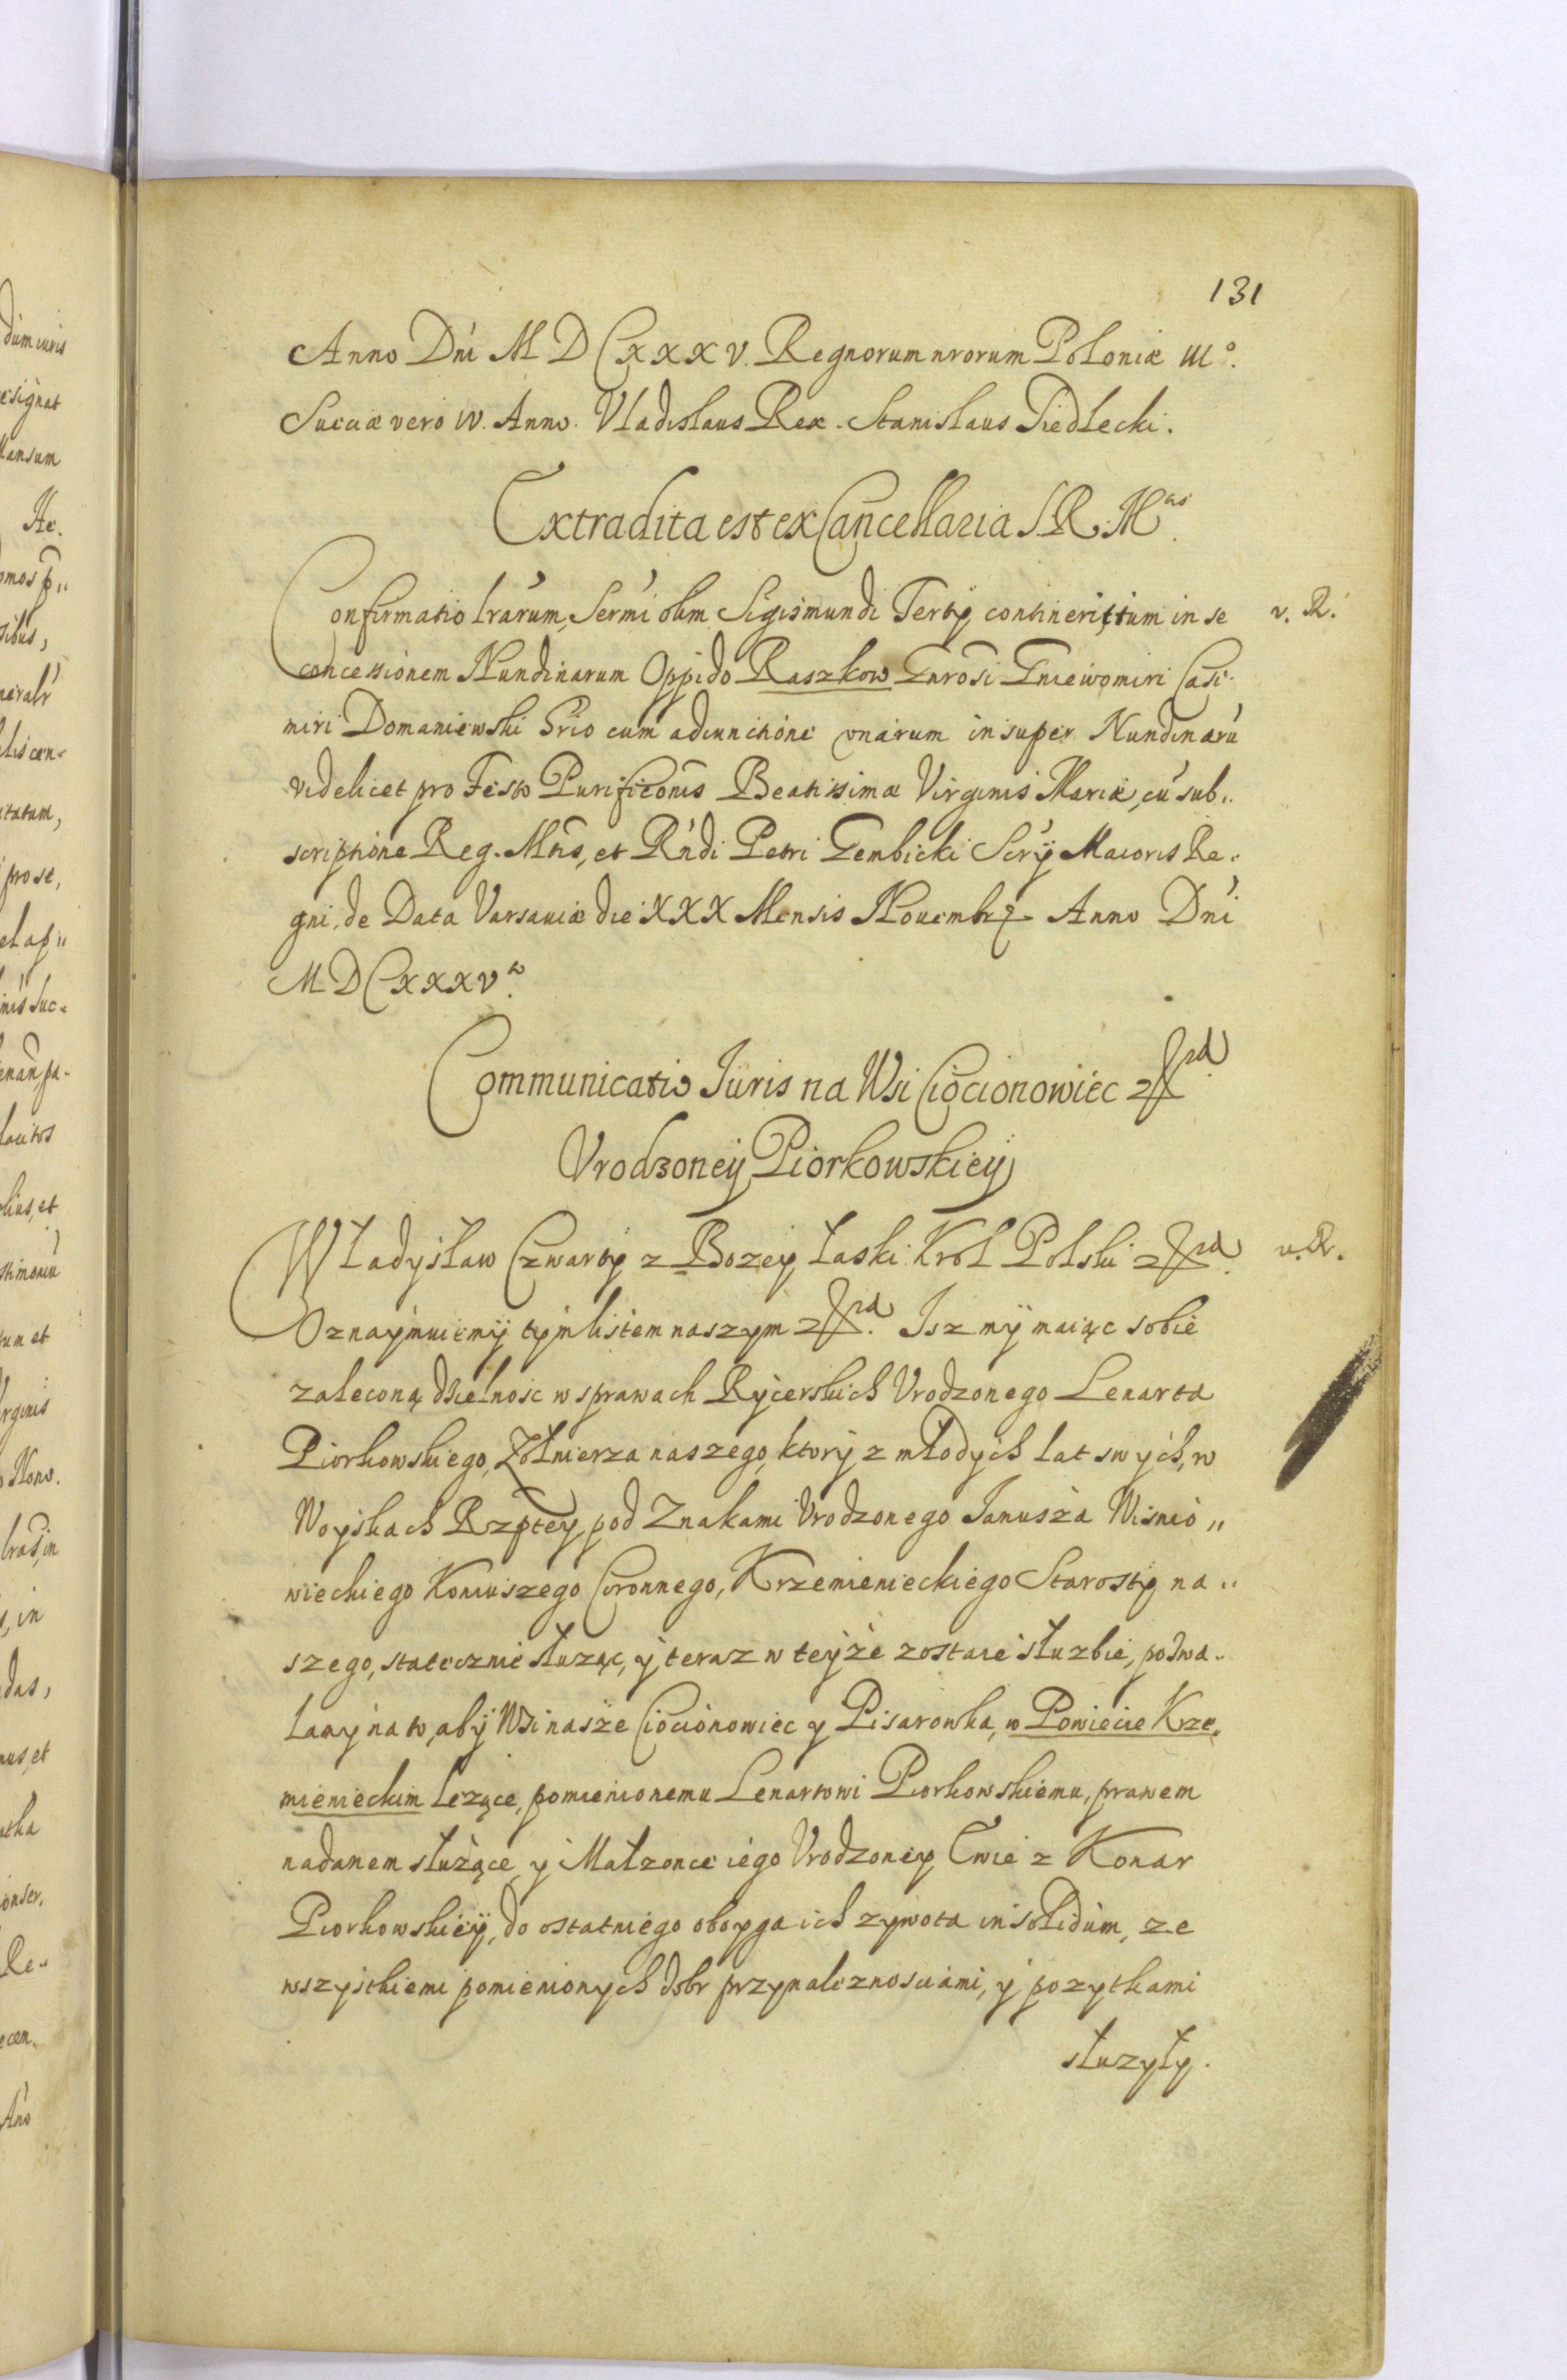 131
Anno Dni MDCXXXV. Regnorum nrorum Poloniæ IIIº.
Sueciæ vero IV. Anno. Vladislaus Rex. Stanislaus Siedlecki.
Extradita est ex Cancellaria S.R.Mtis
Confirmatio lrarum, Sermi olim Sigismundi Tertij continentium in se v. R.
concessionem Nundinarum Oppido Raszkow Gnrosi Gniewomiri Casi-
miri Domaniewski Srio cum adiunctione vnarum insuper Nundinaru
videlicet pro Festo Purificonis Beatissimæ Virginis Mariæ, cu sub„
scriptione Reg. Mtis, et Rndi Petri Gembicki Scrÿ Maioris Re„
gni, de Data Varsaviæ die XXX Mensis Nouembr Anno Dni
MDCXXXVto.
Communicatio Iuris na Wsi Ciocionowiec &rd
Vrodzoney Piorkowskiey
Władysław Czwarty z Bozey łaski Krol Polski &rd. v. R.
Oznaymuiemy tym listem naszym &rd. Isz my maiąc sobie
zaleconą dzielnosc w sprawach Rycerskich Vrodzonego Lenarta
Piorkowskiego, Zołnierza naszego, ktory z młodych lat swych, w
Woyskach Rzptey pod Znakami Vrodzonego Janusza Wisnio„
wieckiego Koniuszego Coronnego, Krzemienieckiego Starosty na„
szego, statecznie służąc, y teraz w teyże zostaie służbie, pozwa„
lamy na to, aby Wsi nasze Ciocionowiec y Pisarowka, w Powiecie Krze„
mienieckim leżące, pomienionemu Lenartowi Piorkowskiemu, prawem
nadanem służące y Małzonce iego Vrodzoney Ewie z Konar
Piorkowskiey, do ostatniego oboyga ich zywota in solidum, ze
wszystkiemi pomienionych dobr przynaleznosciami, y pozytkami
służyły.